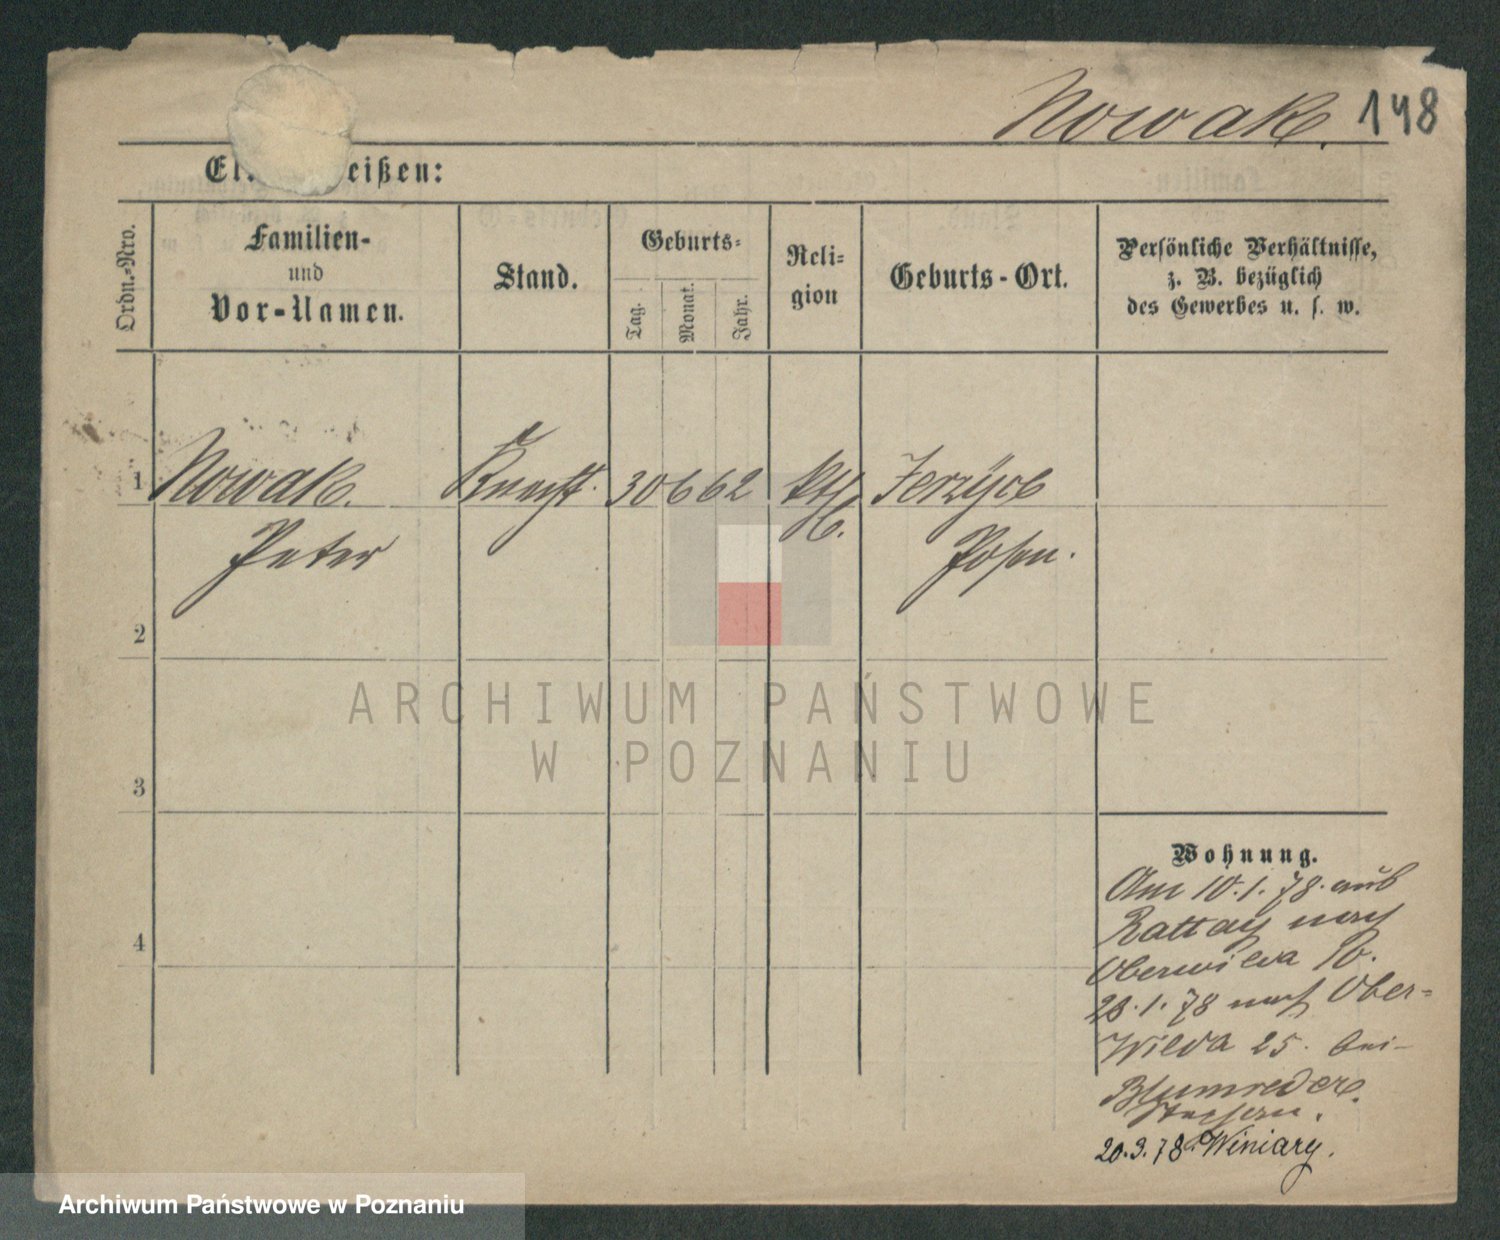 Nowak. 148
El eißen:
Ordn.-Nro.
Familien-
und
Vor-Namen.
Stand.
Geburts-
Tag.
Monat.
Jahr.
Reli-
gion
Geburts-Ort.
Persönliche Verhältnisse,
z. B. bezüglich
des Gewerbes u. s. w.
1 Nowak. Knecht. 30 6 62 kth. Jerzyce
Peter Posen.
2
3
4
ARCHIWUM PAŃSTWOWE
W POZNANIU
Wohnung.
Am 10.1.78. aus
Rattay nach
Oberwilda 10.
28.1.78 nach Ober-
Wilda 25. bei
Blumreder.
20.3.78 Winiary.
Archiwum Państwowe w Poznaniu